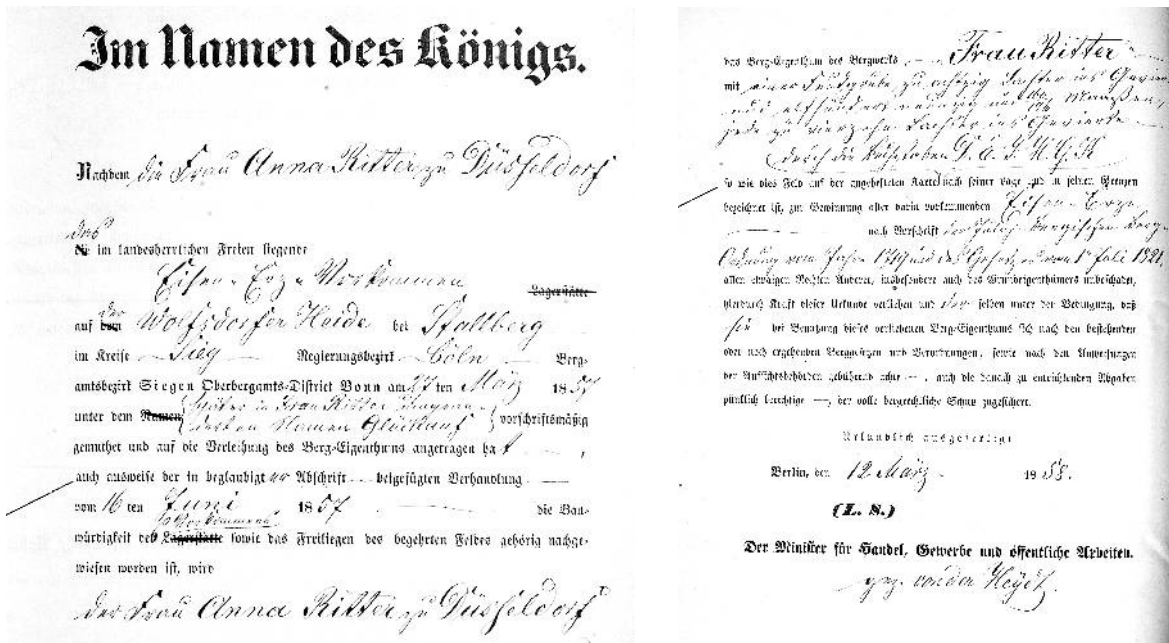 Im Namen des Königs.
Nachdem die Frau Anna Ritter zu Düsseldorf
das
im landesherrlichen Freien liegende
Eisen-Erz-Vorkommen Lagerstätte
auf dem der Wolfsdorfer Heide bei Stallberg
im Kreise Sieg Regierungsbezirk Cöln Berg-
amtsbezirk Siegen Oberbergamts-District Bonn am 27 ten März 1857
unter dem Namen später in Frau Ritter
Namen Glückauf vorschriftsmäßig
gemuthet und auf die Verleihung des Berg-Eigenthums angetragen hat,
auch ausweise der in beglaubigter Abschrift beigefügten Verhandlung
vom 16 ten Juni 1857 die Bau-
Vorkommens
würdigkeit des Lagerstätte sowie das Freiliegen des begehrten Feldes gehörig nachge-
wiesen worden ist, wird
der Frau Anna Ritter zu Düsseldorf
das Berg-Eigenthum des Bergwerks Frau Ritter
mit einer Fundgrube zu achtzig Lachter ins Gevier
und elfhundert neunzig und Maaßen,
jede zu vierzehn Lachter ins Gevierte
durch die Buchstaben
so wie dies Feld auf der angehefteten Karte nach seiner Lage und in seinen Grenzen
bezeichnet ist, zur Gewinnung aller darin vorkommenden Eisen-Erze
nach Vorschrift der Jülich Bergischen Berg-
Ordnung vom Jahre 1719 und des Gesetzes vom 1 Juli 1821,
allen etwaigen Rechten Anderer, insbesondere auch des Grundeigenthümers unbeschadet,
hierdurch Kraft dieser Urkunde verliehen und derselben unter der Bedingung, daß
sie bei Benutzung dieses verliehenen Berg-Eigenthums sich nach den bestehenden
oder noch ergehenden Berggesetzen und Verordnungen, sowie nach den Anweisungen
der Aufsichtsbehörden gebührend achte, auch die danach zu entrichtenden Abgaben
pünktlich berichtige, der volle bergrechtliche Schutz zugesichert.
Urkundlich ausgefertigt
Berlin, den 12 März 1858.
(L. S.)
Der Minister für Handel, Gewerbe und öffentliche Arbeiten.
gez. von der Heydt.